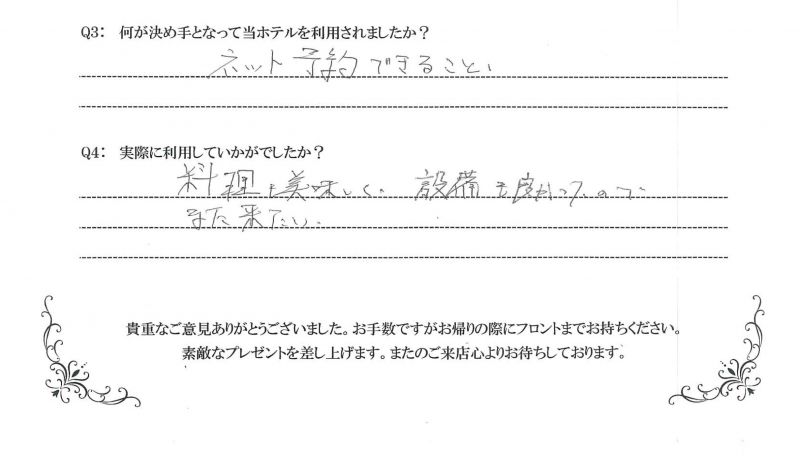 Q3: 何が決め手となって当ホテルを利用されましたか？
ネット予約できること、
Q4: 実際に利用していかがでしたか？
料理も美味しく、設備も良かったので
また来たい。
貴重なご意見ありがとうございました。お手数ですがお帰りの際にフロントまでお持ちください。
素敵なプレゼントを差し上げます。またのご来店心よりお待ちしております。